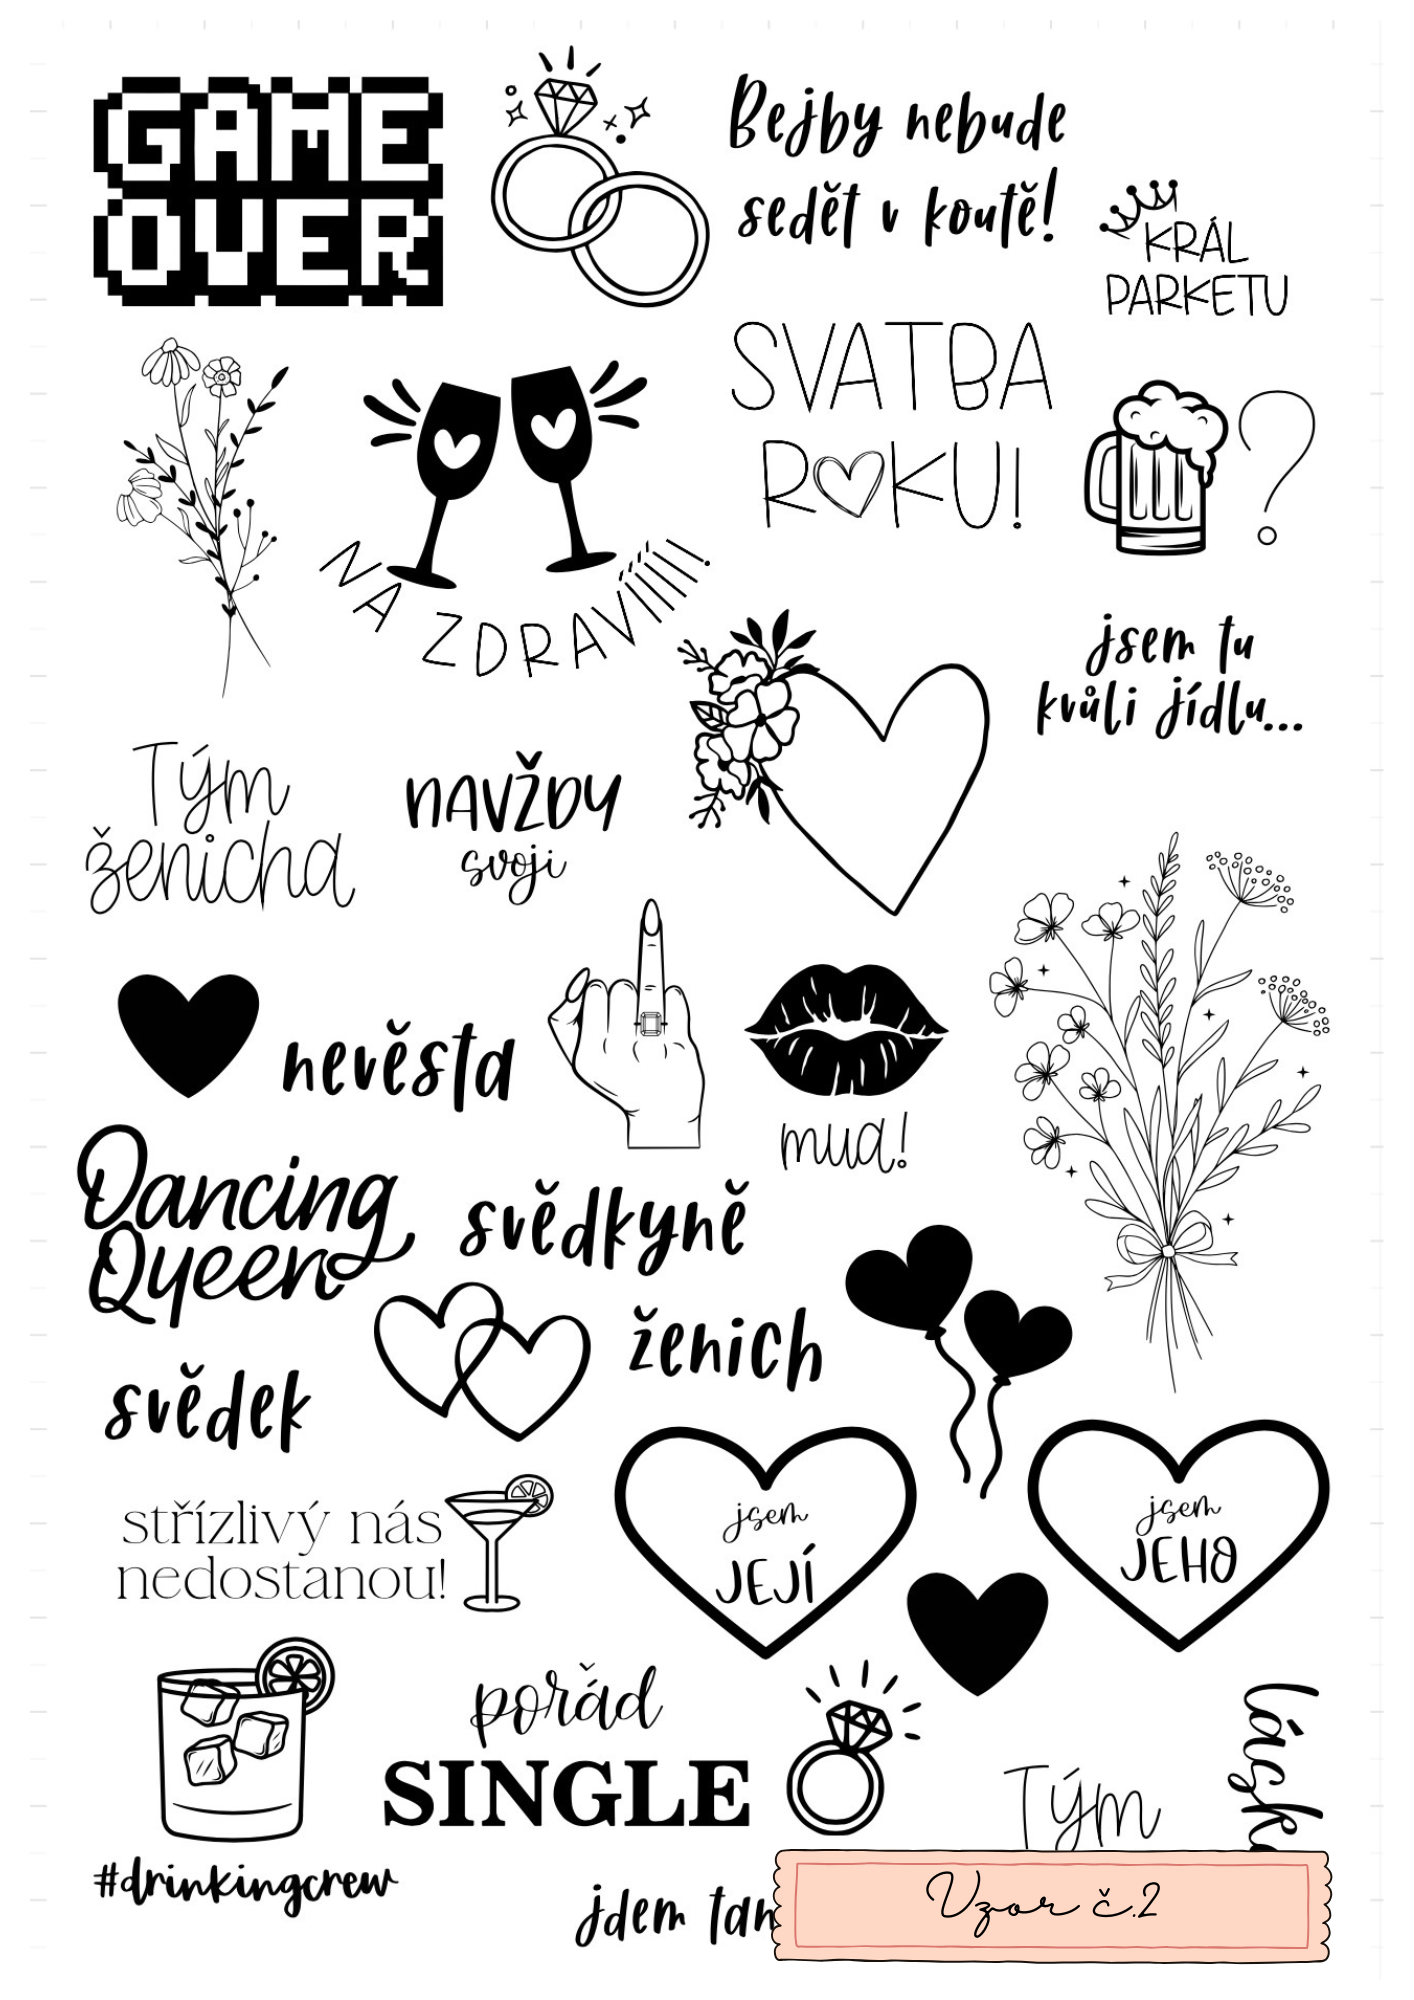 GAME
OVER
Bejby nebude
sedět v koutě!
KRÁL
PARKETU
SVATBA
ROKU!
?
NA ZDRAVÍÍÍÍ!
jsem tu
kvůli jídlu...
Tým
ženicha
NAVŽDY
svoji
nevěsta
mua!
Dancing
Queen
svědkyně
ženich
svědek
jsem
JEJÍ
jsem
JEHO
střízlivý nás
nedostanou!
pořád
SINGLE
Tým
#drinkingcrew
jdem
Vzor č.2